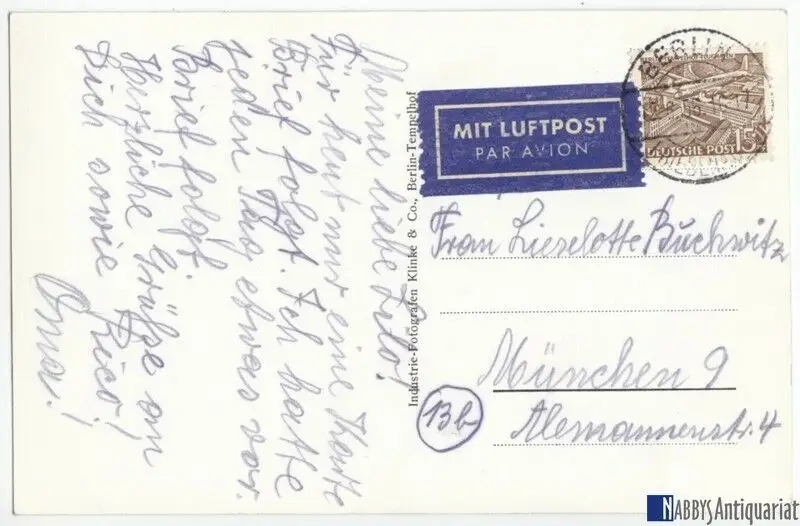 Meine liebe Lilo!
Für heut nur eine Karte
Brief folgt. Ich hatte
jeden Tag etwas vor.
Brief folgt
Herzliche Grüße an
Dich sowie Rico!
Oma!
Industrie-Fotografen Klinke & Co., Berlin-Tempelhof
MIT LUFTPOST
PAR AVION
BERLIN
DEUTSCHE POST 15
Frau Lieselotte Buchwitz
13b
München 9
Alemannenstr. 4
NABBYSAntiquariat